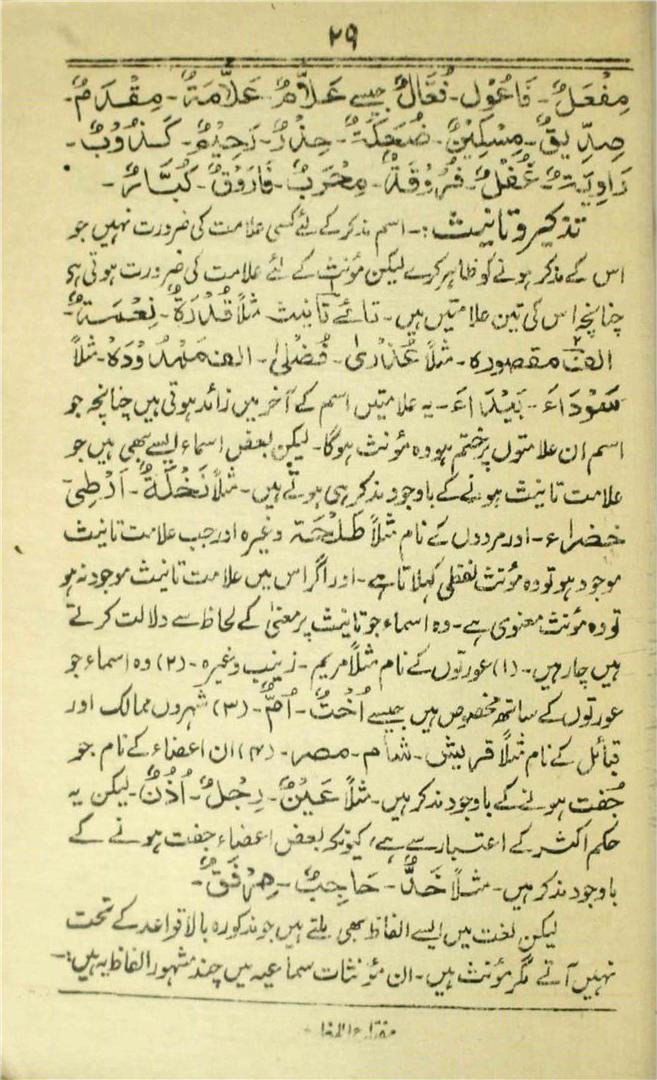 ۲۹
مِفْعَلٌ۔ فَاعُوْل۔ فُعَّالٌ جیسے عَلَّامٌ عَلَّامَةٌ۔ مِقْدَمٌ۔
صِدِّیْقٌ۔ مِسْکِیْنٌ۔ ضُحَکَةٌ۔ حِذْرٌ۔ رَحِیْمٌ۔ کَذُوْبٌ۔
رَاوِیَةٌ۔ غُفْلٌ۔ فَرُوْقَةٌ۔ مِحْرَبٌ۔ فَارُوْقٌ۔ کُبَّارٌ۔
تذکیر و تانیث :۔ اسم مذکر کے لئے کسی علامت کی ضرورت نہیں جو
اس کے مذکر ہونے کو ظاہر کرے لیکن مؤنث کے لئے علامت کی ضرورت ہوتی ہی
چنانچہ اس کی تین علامتیں ہیں۔ تائے تانیث مثلاً قُدْرَةٌ۔ نِعْمَةٌ۔
۲ الف مقصورہ۔ مثلاً عُذْرىٰ۔ فُضْلىٰ۔ الف مَمْدُوْدَہْ۔ مثلاً
سَوْدَاءَ۔ بَیْدَاءَ۔ یہ علامتیں اسم کے آخر میں زائد ہوتی ہیں چنانچہ جو
اسم ان علامتوں پر ختم ہو وہ مؤنث ہوگا۔ لیکن بعض اسماء ایسے بھی ہیں جو
علامت تانیث ہونے کے باوجود مذکر ہی ہوتے ہیں۔ مثلاً نَخْلَةٌ۔
خضراء۔ اور مردوں کے نام مثلاً طَلْحَة وغیرہ اور جب علامت تانیث
موجود ہو تو وہ مؤنث لفظی کہلاتا ہے۔ اور اگر اس میں علامت تانیث موجود نہ ہو
تو وہ مؤنث معنوی ہے۔ وہ اسماء جو تانیث پر معنیٰ کے لحاظ سے دلالت کرتے
ہیں چار ہیں۔ (۱) عورتوں کے نام مثلاً مریم۔ زینب وغیرہ۔ (۲) وہ اسماء جو
عورتوں کے ساتھ مخصوص ہیں جیسے اُخْتٌ۔ اُمٌّ۔ (۳) شہروں ممالک اور
قبائل کے نام مثلاً قریش۔ شام۔ مصر۔ (۴) ان اعضاء کے نام جو
جُفت ہونے کے باوجود مذکر ہیں۔ مثلاً عَیْنٌ۔ رِجْلٌ۔ اُذُنٌ۔ لیکن یہ
حکم اکثر کے اعتبار سے ہے، کیونکہ بعض اعضاء جفت ہونے کے
باوجود مذکر ہیں۔ مثلاً خَدٌّ۔ حَاجِبٌ۔ مِرْفَقٌ۔
لیکن لغت میں ایسے الفاظ بھی ملتے ہیں جو مذکورہ بالا قواعد کے تحت
نہیں آتے مگر مؤنث ہیں۔ ان مؤنثات سماعیہ میں چند مشہور الفاظ یہ ہیں:۔